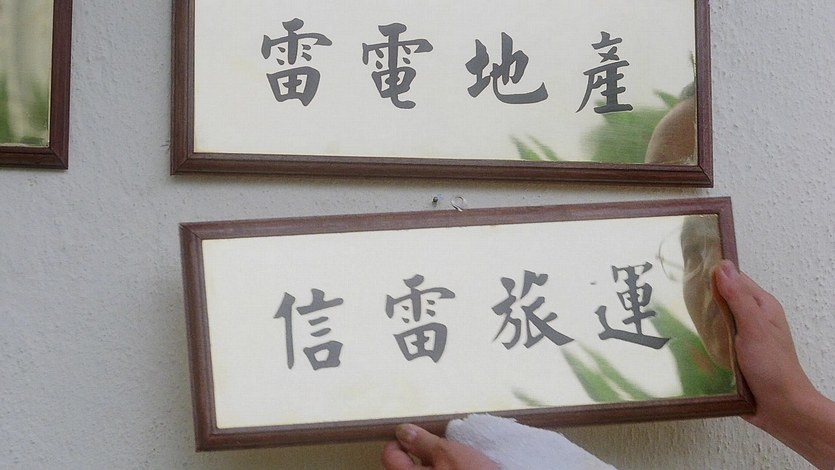 雷電地產
信雷旅運